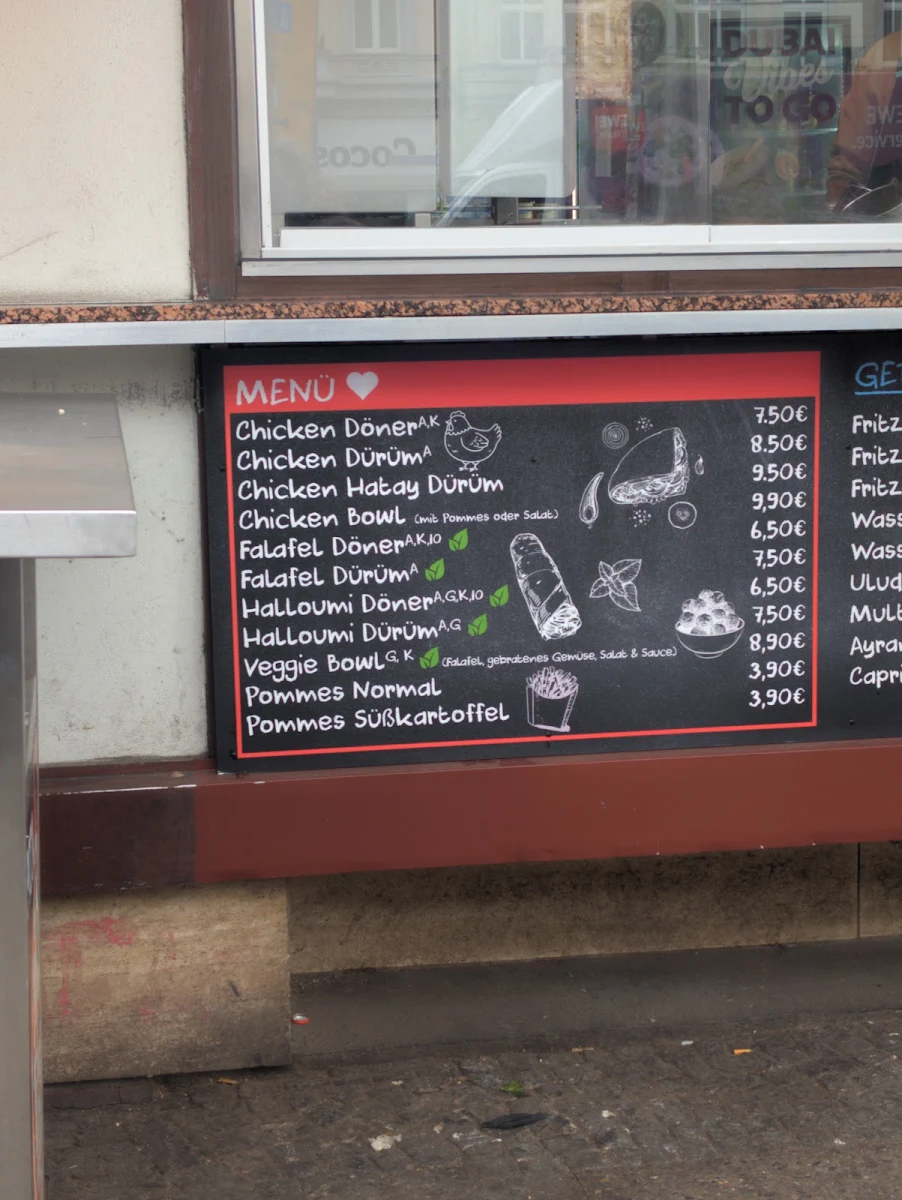 DUBAI
Vibes
TO GO
Cocos
MENÜ
Chicken Döner A,K 7.50€
Chicken Dürüm A 8.50€
Chicken Hatay Dürüm 9.50€
Chicken Bowl (mit Pommes oder Salat) 9,90€
Falafel Döner A,K,10 6,50€
Falafel Dürüm A 7,50€
Halloumi Döner A,G,K,10 6,50€
Halloumi Dürüm A,G 7,50€
Veggie Bowl G, K (Falafel, gebratenes Gemüse, Salat & Sauce) 8,90€
Pommes Normal 3,90€
Pommes Süßkartoffel 3,90€
GE
Fritz
Fritz
Fritz
Wass
Wass
Ulud
Mult
Ayran
Capri